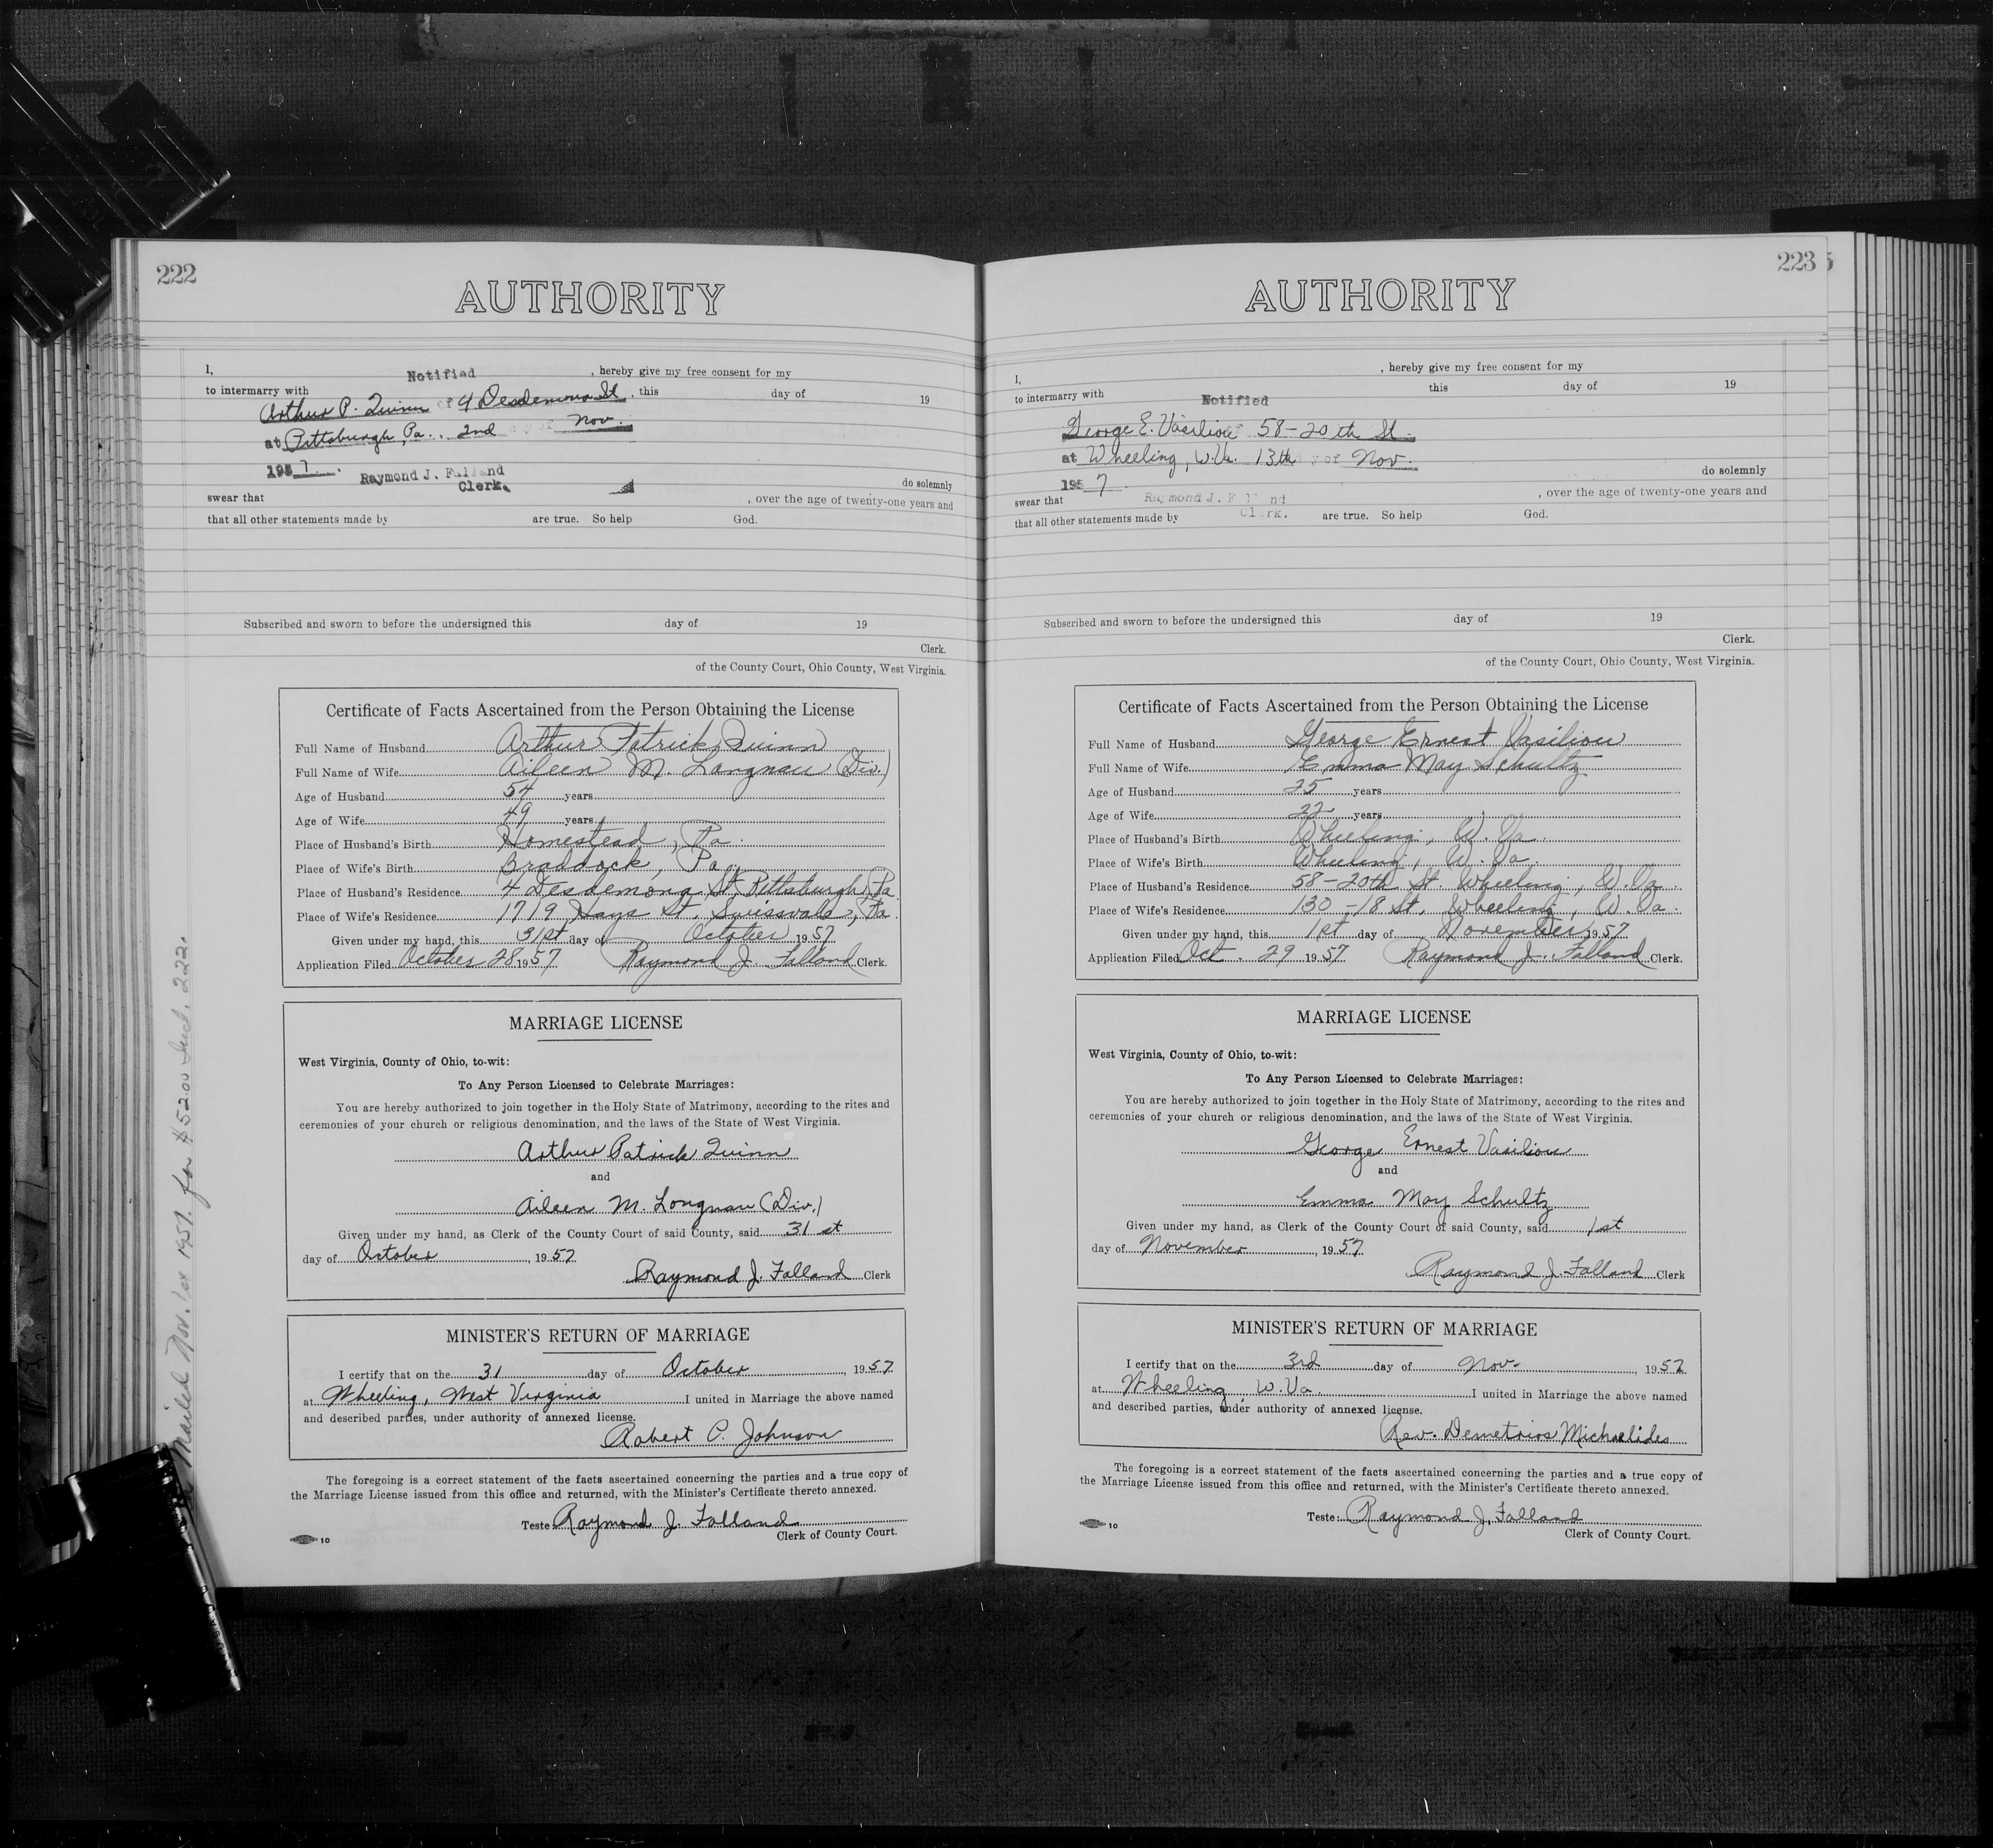 222
AUTHORITY
I, Notified , hereby give my free consent for my
to intermarry with , this day of 19
Arthur P. Quinn of 4 Desdemona St
at Pittsburgh, Pa., 2nd day of Nov.
1957. Raymond J. Falland
Clerk.
do solemnly
swear that , over the age of twenty-one years and
that all other statements made by are true. So help God.
Subscribed and sworn to before the undersigned this day of 19
Clerk.
of the County Court, Ohio County, West Virginia.
Certificate of Facts Ascertained from the Person Obtaining the License
Full Name of Husband Arthur Patrick Quinn
Full Name of Wife Aileen M. Langnau (Div.)
Age of Husband 54 years
Age of Wife 49 years
Place of Husband's Birth Homestead, Pa.
Place of Wife's Birth Braddock, Pa.
Place of Husband's Residence 4 Desdemona St. Pittsburgh, Pa.
Place of Wife's Residence 1719 Hays St. Swissvale, Pa.
Given under my hand, this 31st day of October 1957
Application Filed October 28 1957 Raymond J. Falland Clerk.
MARRIAGE LICENSE
West Virginia, County of Ohio, to-wit:
To Any Person Licensed to Celebrate Marriages:
You are hereby authorized to join together in the Holy State of Matrimony, according to the rites and
ceremonies of your church or religious denomination, and the laws of the State of West Virginia.
Arthur Patrick Quinn
and
Aileen M. Longnau (Div.)
Given under my hand, as Clerk of the County Court of said County, said 31st
day of October , 1957
Raymond J. Falland Clerk
MINISTER'S RETURN OF MARRIAGE
I certify that on the 31 day of October , 1957
at Wheeling, West Virginia I united in Marriage the above named
and described parties, under authority of annexed license.
Robert P. Johnson
The foregoing is a correct statement of the facts ascertained concerning the parties and a true copy of
the Marriage License issued from this office and returned, with the Minister's Certificate thereto annexed.
Teste Raymond J. Falland
Clerk of County Court.
10
Mailed Nov. 1st 1957 for $52.00 Incl. 222.
223
5
AUTHORITY
I, , hereby give my free consent for my
to intermarry with this day of 19
Notified
George E. Vasiliou of 58-20th St.
at Wheeling, W.Va. 13th day of Nov.
1957. do solemnly
swear that Raymond J. Falland , over the age of twenty-one years and
that all other statements made by Clerk. are true. So help God.
Subscribed and sworn to before the undersigned this day of 19
Clerk.
of the County Court, Ohio County, West Virginia.
Certificate of Facts Ascertained from the Person Obtaining the License
Full Name of Husband George Ernest Vasiliou
Full Name of Wife Emma May Schultz
Age of Husband 25 years
Age of Wife 22 years
Place of Husband's Birth Wheeling, W. Va.
Place of Wife's Birth Wheeling, W. Va.
Place of Husband's Residence 58-20th St. Wheeling, W. Va.
Place of Wife's Residence 130-18 St. Wheeling, W. Va.
Given under my hand, this 1st day of November 1957
Application Filed Oct. 29 1957 Raymond J. Falland Clerk.
MARRIAGE LICENSE
West Virginia, County of Ohio, to-wit:
To Any Person Licensed to Celebrate Marriages:
You are hereby authorized to join together in the Holy State of Matrimony, according to the rites and
ceremonies of your church or religious denomination, and the laws of the State of West Virginia.
George Ernest Vasiliou
and
Emma May Schultz
Given under my hand, as Clerk of the County Court of said County, said 1st
day of November , 1957
Raymond J. Falland Clerk
MINISTER'S RETURN OF MARRIAGE
I certify that on the 3rd day of Nov. , 1957
at Wheeling, W. Va. I united in Marriage the above named
and described parties, under authority of annexed license.
Rev. Demetrios Michaelides
The foregoing is a correct statement of the facts ascertained concerning the parties and a true copy of
the Marriage License issued from this office and returned, with the Minister's Certificate thereto annexed.
Teste: Raymond J. Falland
Clerk of County Court.
10